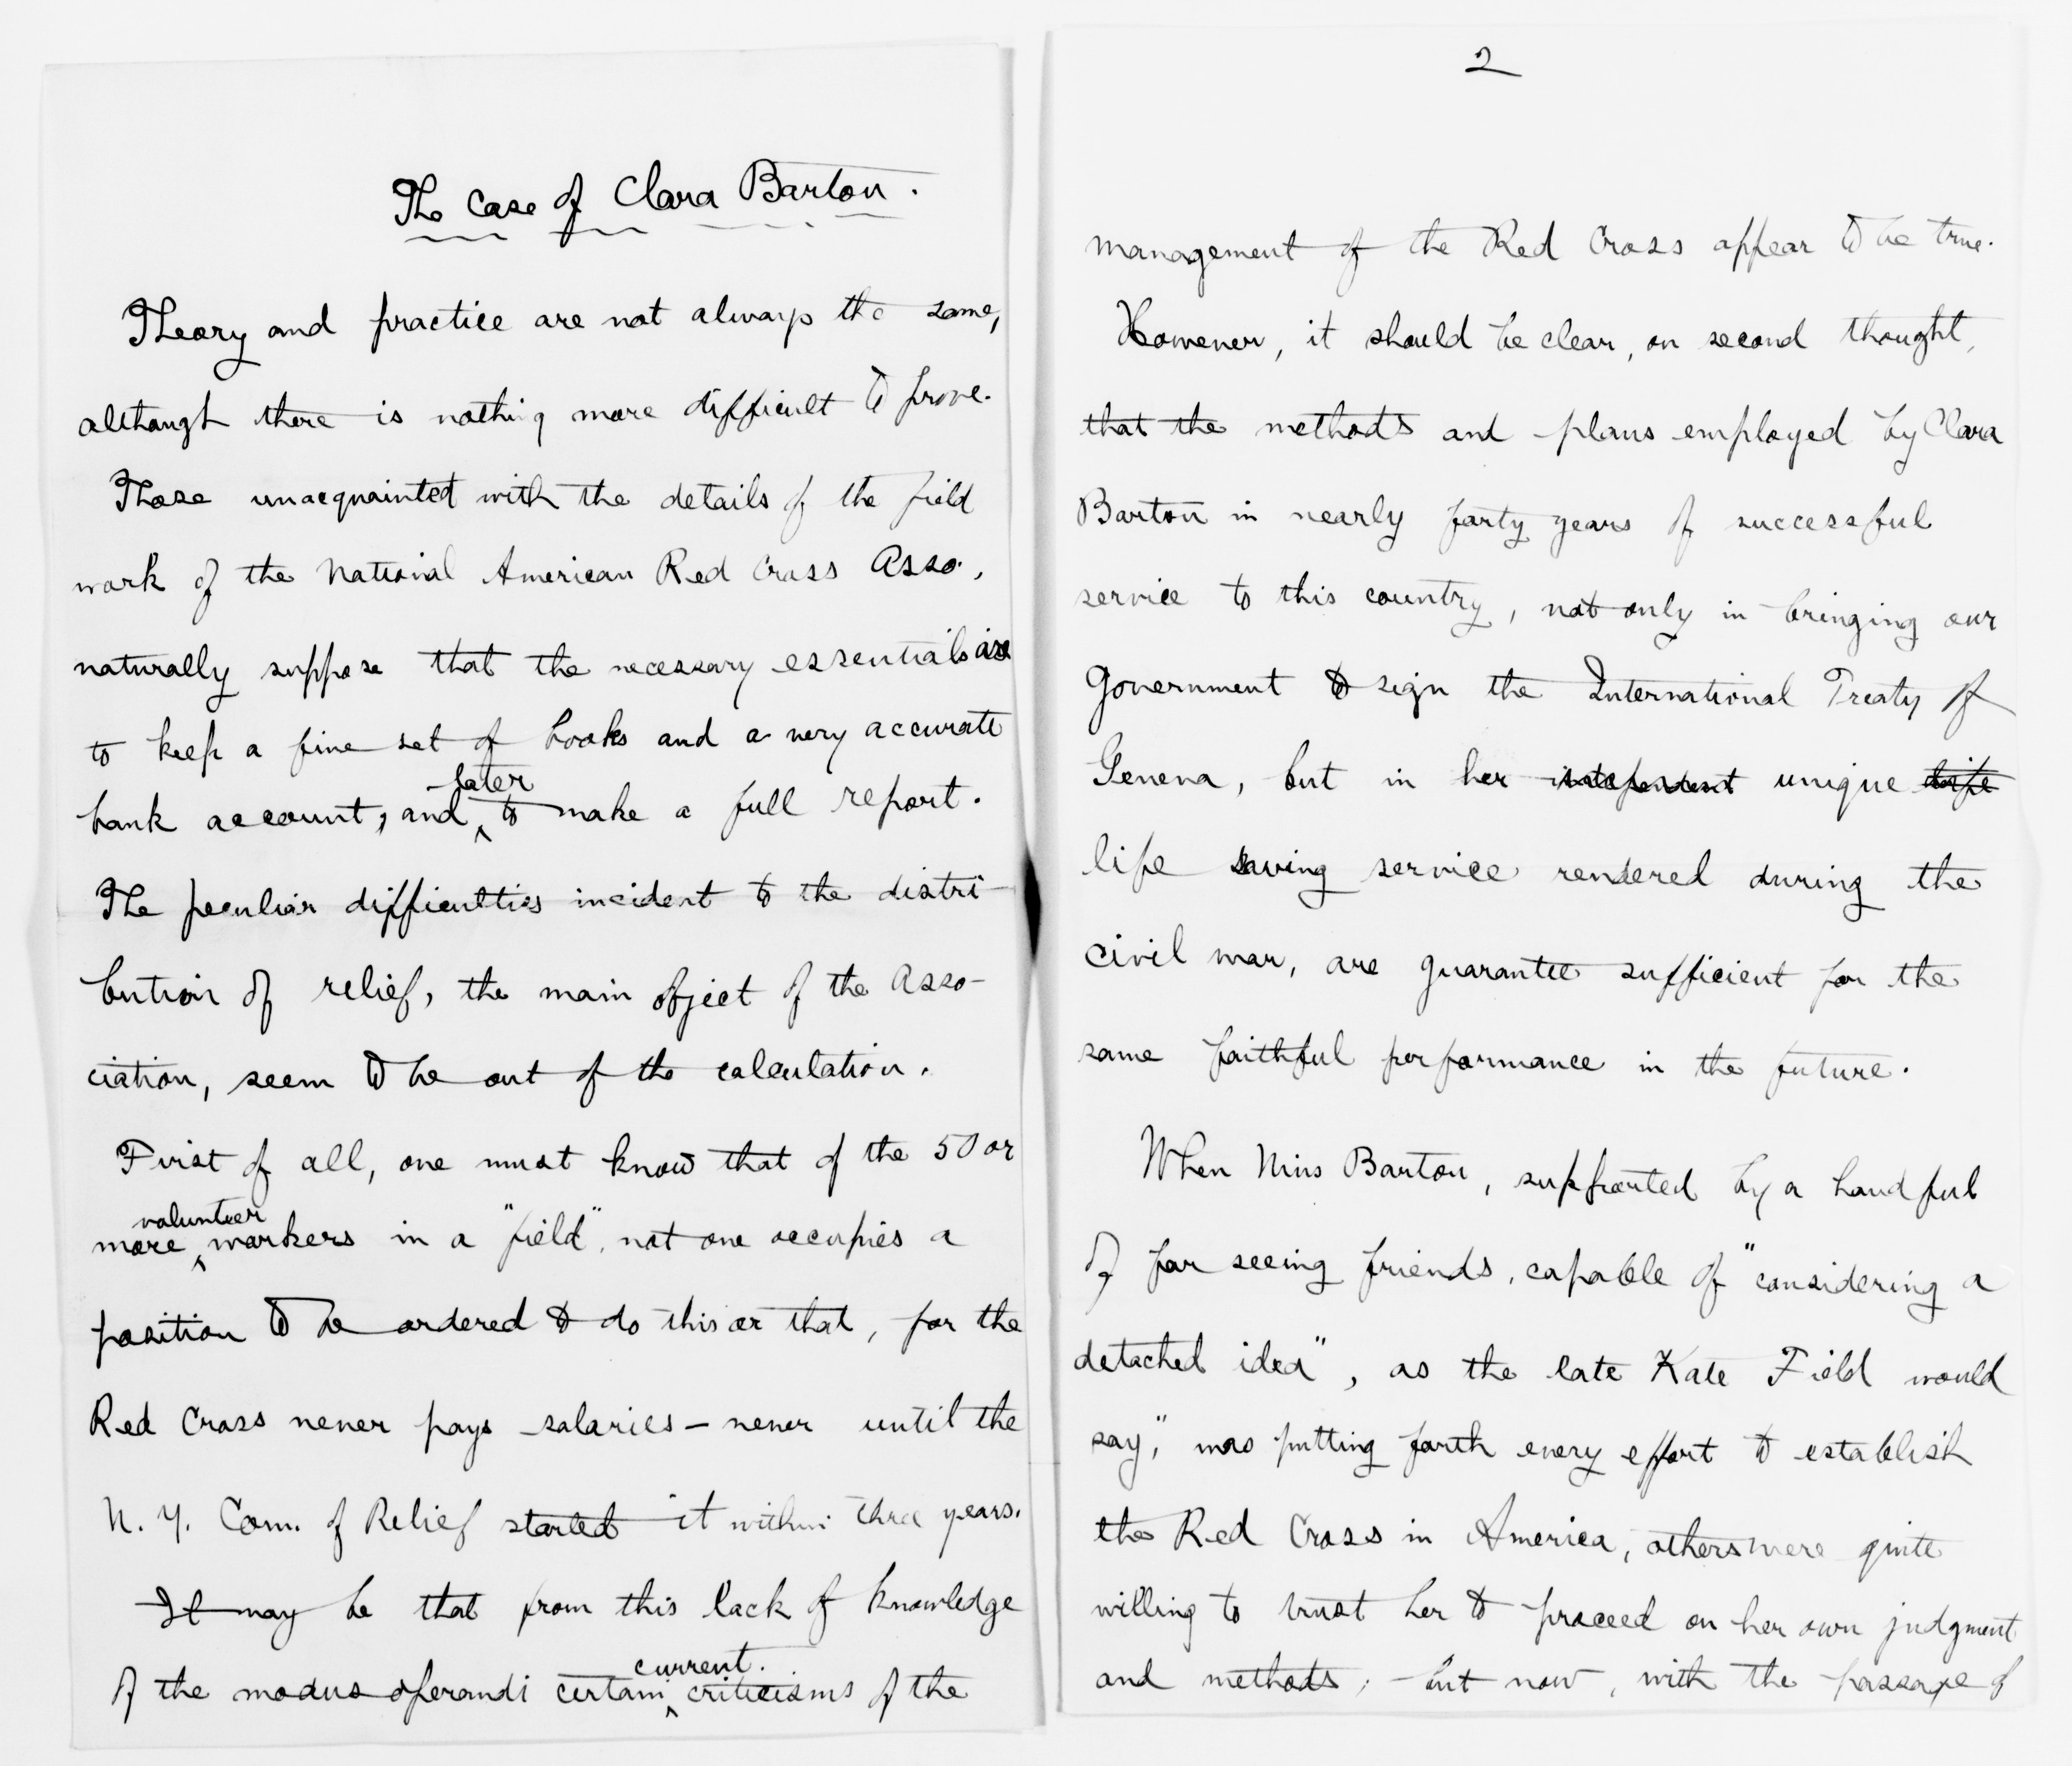 The Case of Clara Barton.
Theory and practice are not always the same,
although there is nothing more difficult to prove.
Those unacquainted with the details of the field
work of the National American Red Cross Asso.,
naturally suppose that the necessary essentials are
to keep a fine set of books and a very accurate
later
bank account, and ^ to make a full report.
The peculiar difficulties incident to the distri-
bution of relief, the main object of the Asso-
ciation, seem to be out of the calculation.
First of all, one must know that of the 50 or
volunteer
more ^ workers in a "field", not one occupies a
position to be ordered to do this or that, for the
Red Cross never pays salaries – never until the
N. Y. Com. of Relief started it within three years.
It may be that from this lack of knowledge
current
of the modus operandi certain ^ criticisms of the
2
management of the Red Cross appear to be true.
However, it should be clear, on second thought,
that the methods and plans employed by Clara
Barton in nearly forty years of successful
service to this country, not only in bringing our
Government to sign the International Treaty of
Geneva, but in her independent unique life
life saving service rendered during the
civil war, are guarantee sufficient for the
same faithful performance in the future.
When Miss Barton, supported by a handful
of far seeing friends, capable of "considering a
detached idea", as the late Kate Field would
say," was putting forth every effort to establish
the Red Cross in America, others were quite
willing to trust her to proceed on her own judgment
and methods; but now, with the passage of